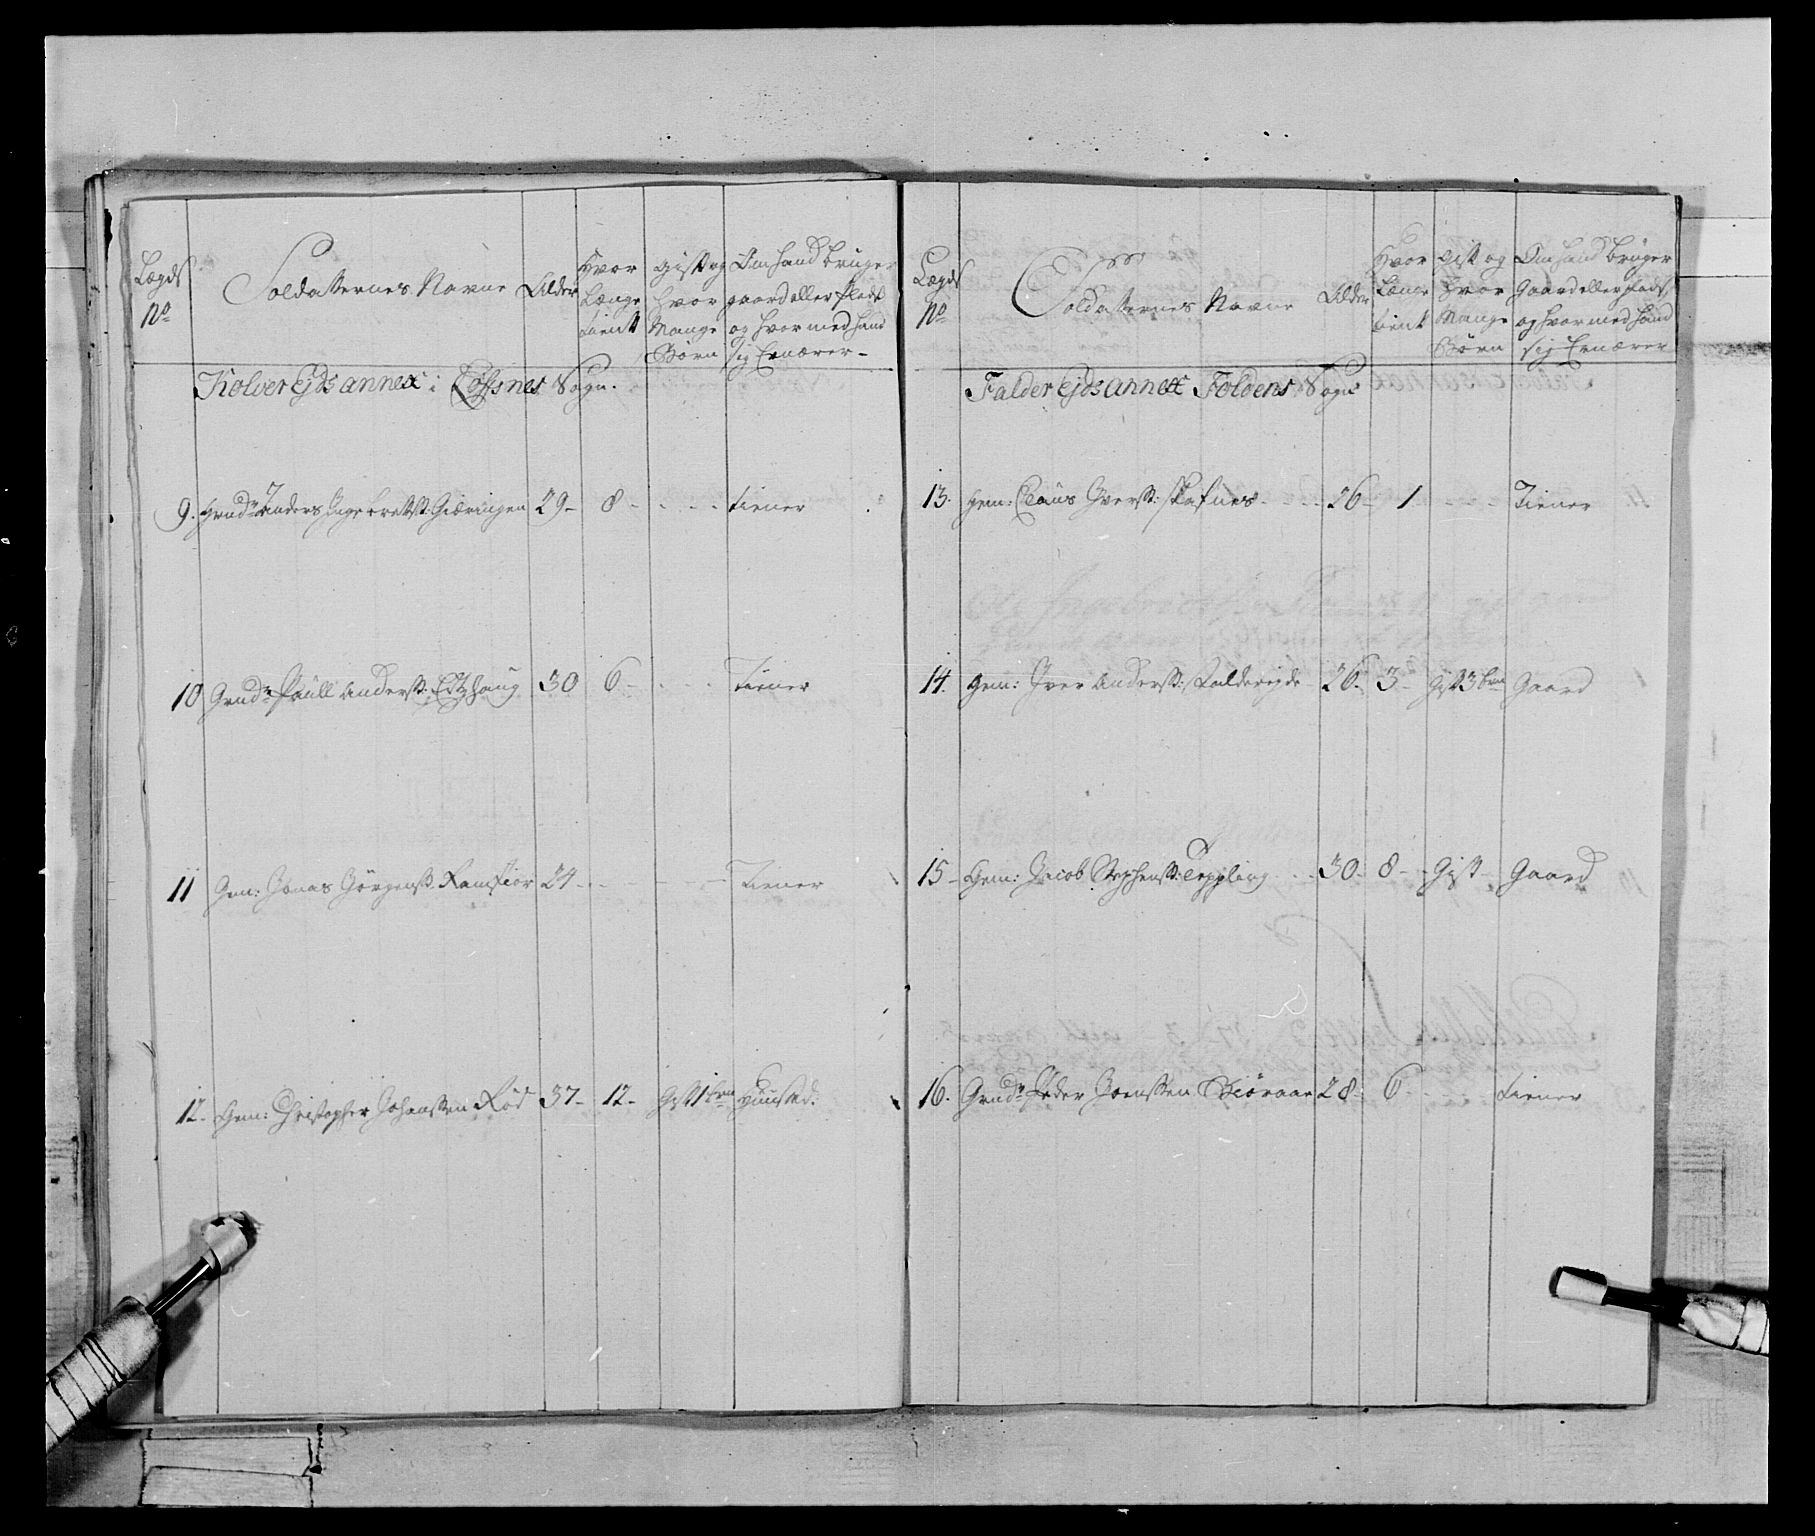 Lægds No
Soldatternes Navne
Alder
Hvor Længe tient
Gift og hvor Mange Børn
Om hand bruger gaard eller plads og hvor med hand sig Ernærer
Kolver Ejds annex i Søfsnes Sogn.
9. Grudr Anders Ingebretst: Giæringen 29 8 tiener
10 Grudr Paull Anderst: Edtzhaug 30 6 Tiener
11 Gem: Jonas Görgenst. Ramfior 24 Tiener
12. Gem: Christopher Johanssen Röd 37 12 Gift 1 brn Huusmd:
Lægds No
Soldatternes Navne
Alder
Hvor Længe tient
Gift og Hvor Mange Börn
Om hand bruger Gaard eller plads og hvor med hand sig Ernærer
Falder Ejds annex Foldens Sogn
13. Gem: Claus Iverst: Skafnes 26 1 Tiener
14. Gem: Iver Anderst: Falderejde 26 3 Gift 3 brn Gaard
15 Gem: Jacob Stephenst: Teppling 30 8 Gift Gaard
16. Grudr Peder Joenssen Biöraae 28 6 tiener